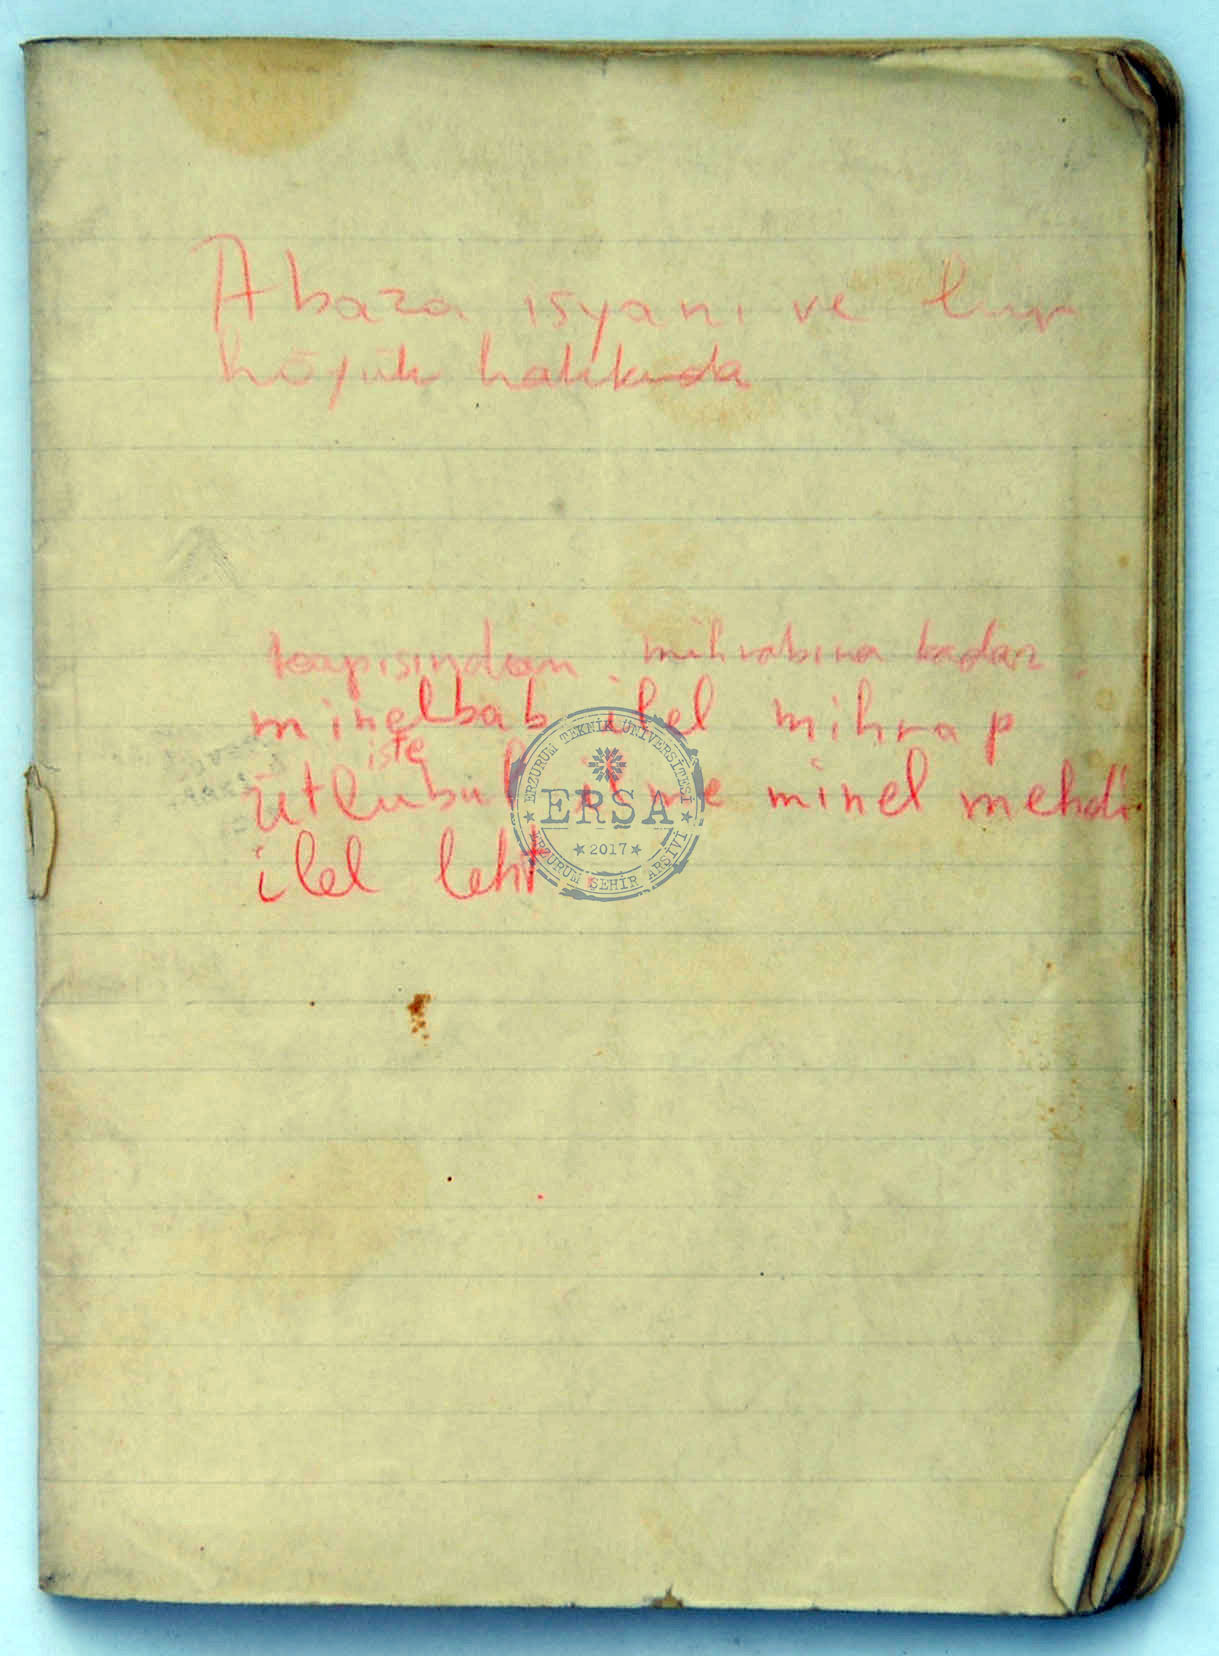 Abaza isyanı ve
höyük hakkında
kapısından mihrabına kadar
minelbab ilel mihrap
iste
ütlubul ilme minel mehdi
ilel leht
ERZURUM TEKNİK ÜNİVERSİTESİ
ERŞA
2017
ERZURUM ŞEHİR ARŞİVİ